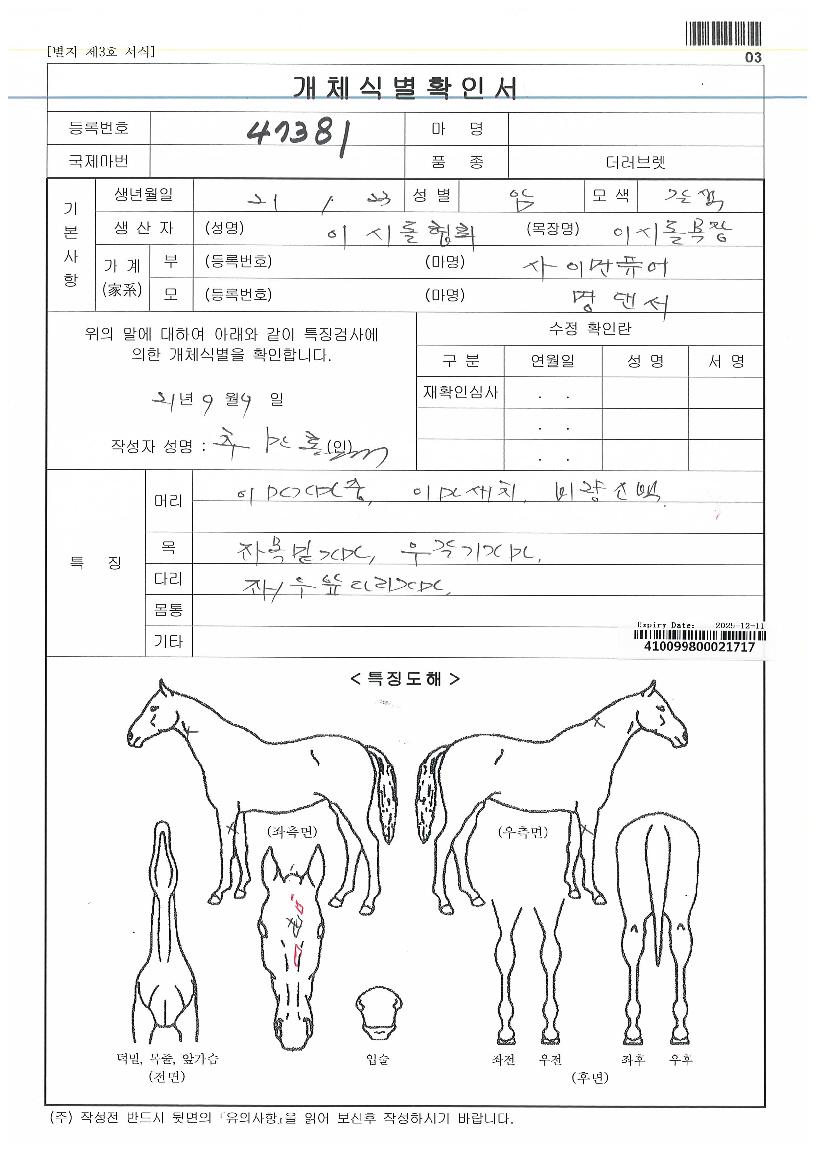 [별지 제3호 서식]
03
개체식별확인서
등록번호 47381 마 명
국제마번 품 종 더러브렛
기본사항
생년월일 21 / 23 성 별 암 모 색 갈색
생 산 자 (성명) 이시돌협회 (목장명) 이시돌목장
가 계 (家系) 부 (등록번호) (마명) 사이먼퓨어
모 (등록번호) (마명) 명댄서
위의 말에 대하여 아래와 같이 특징검사에
의한 개체식별을 확인합니다.
21년 9 월 9 일
작성자 성명 : (인)
수정 확인란
구 분 연월일 성 명 서 명
재확인심사 . .
. .
. .
특 징
머리
목
다리
몸통
기타
Expiry Date: 2025-12-11
410099800021717
< 특징도해 >
(좌측면) (우측면)
턱밑, 목줄, 앞가슴
(전면)
입술
좌전 우전 좌후 우후
(후면)
(주) 작성전 반드시 뒷면의 「유의사항」을 읽어 보신후 작성하시기 바랍니다.